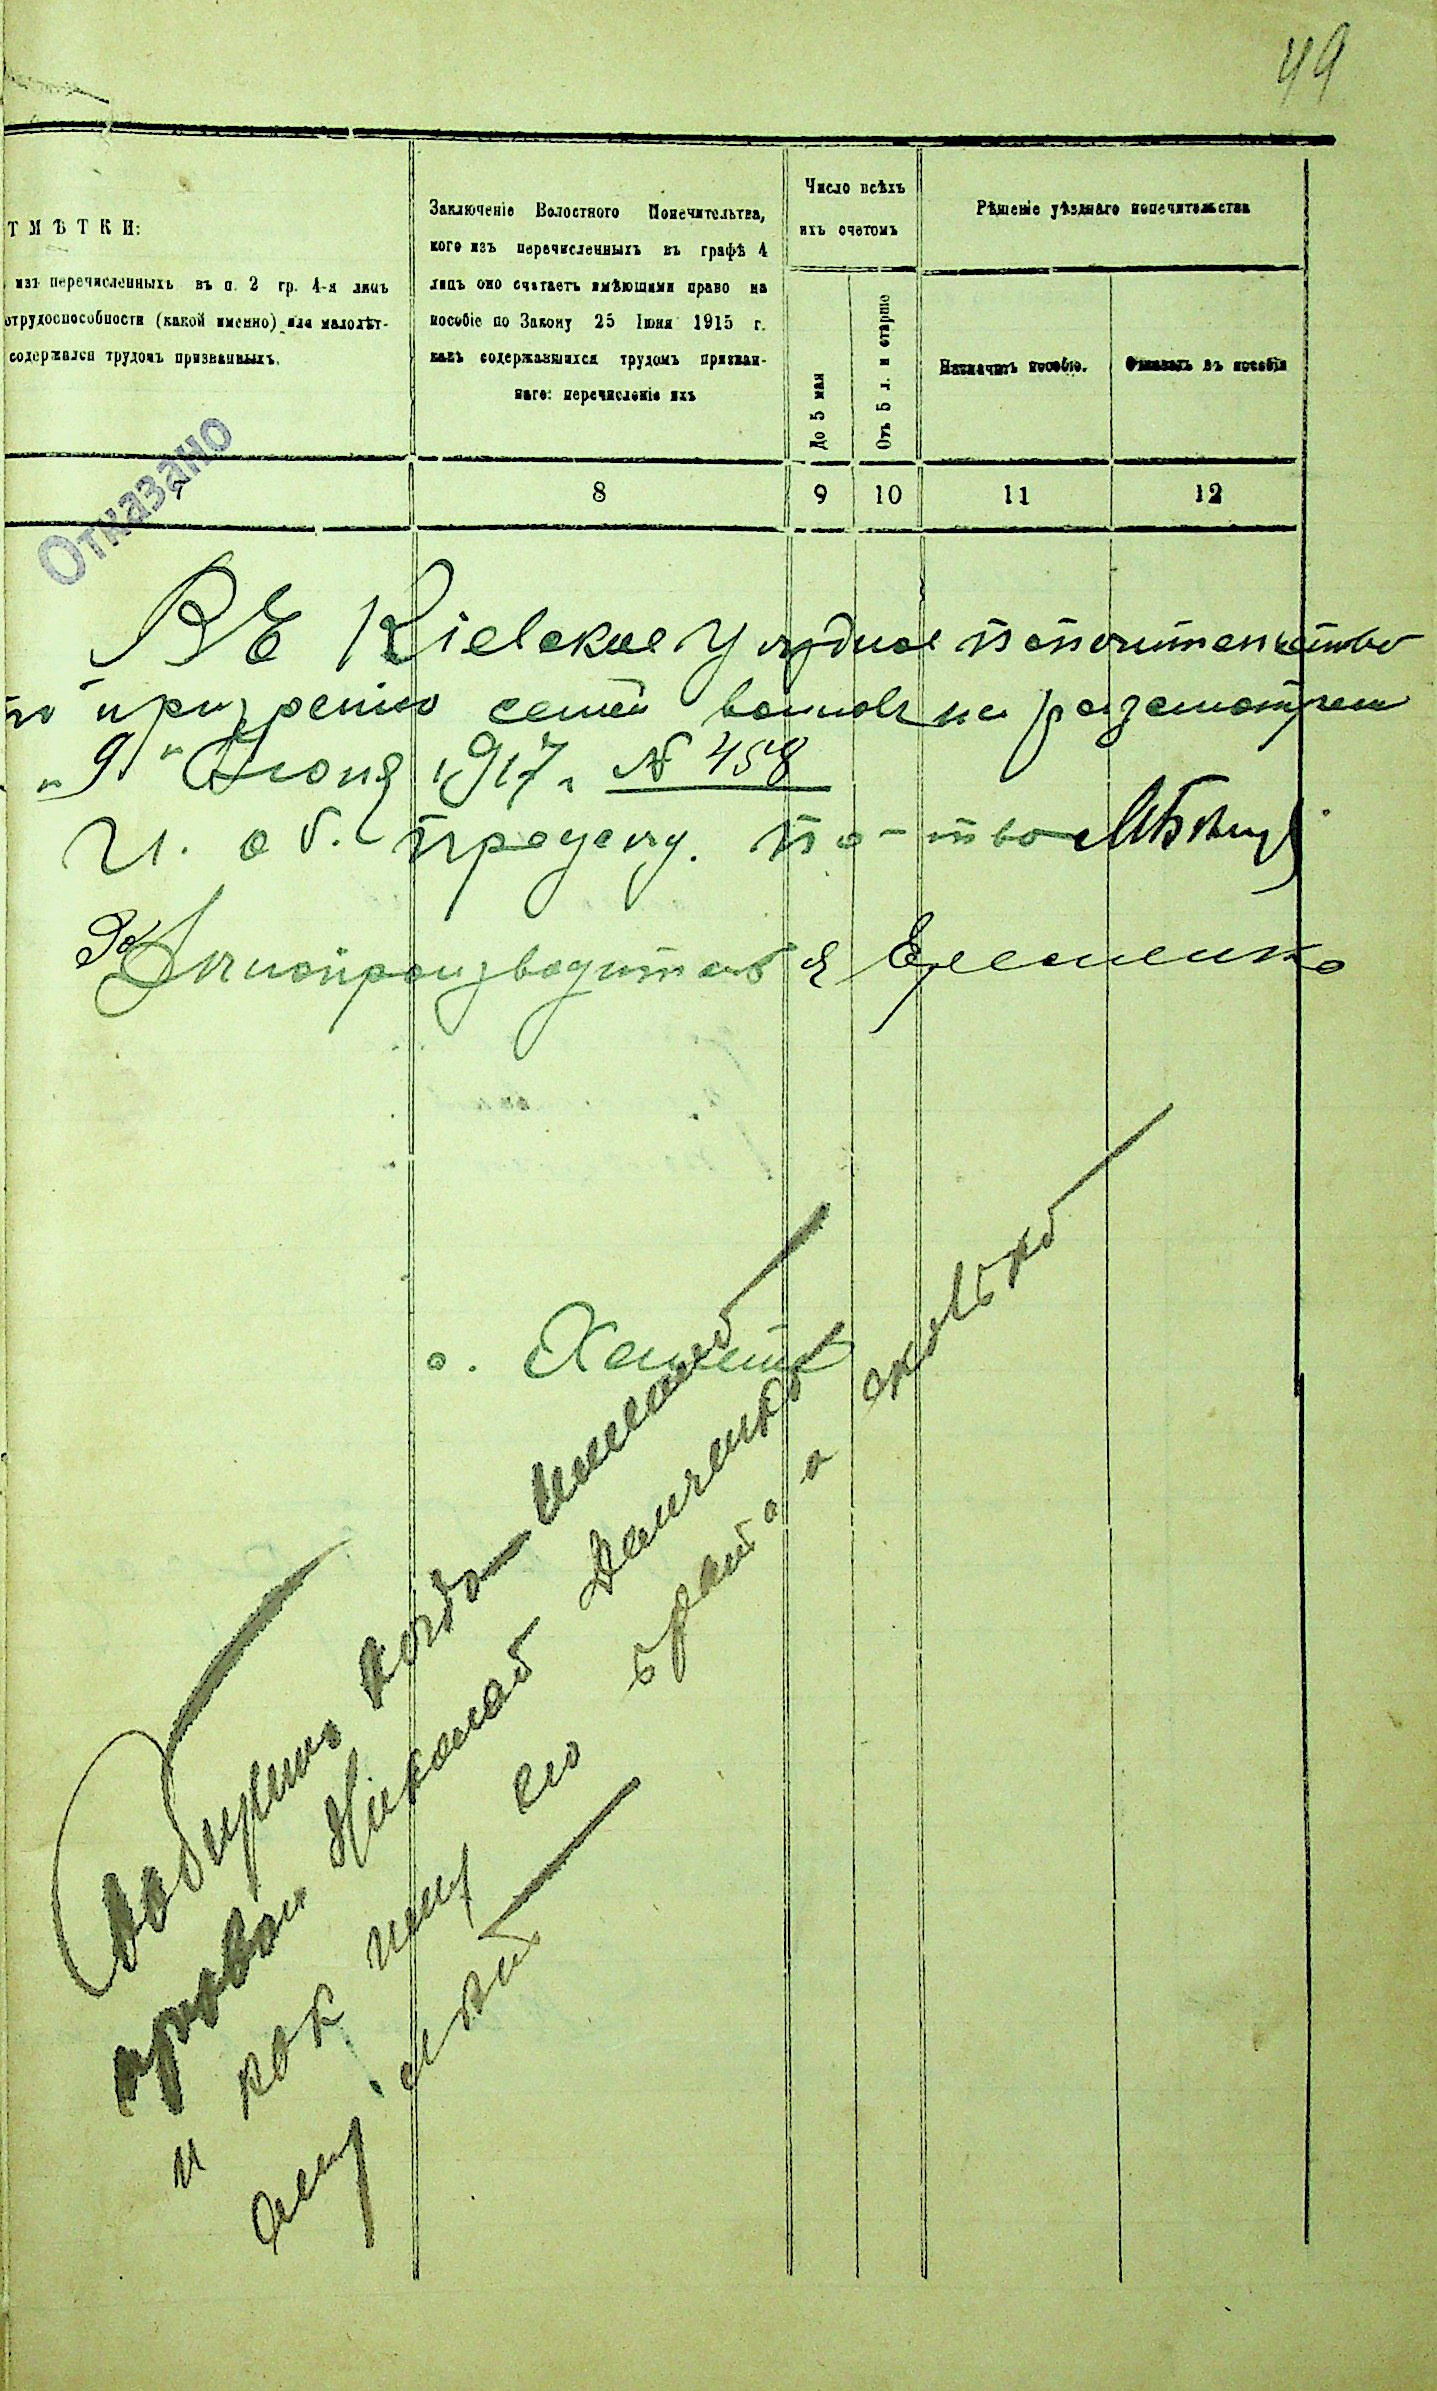 49
ТМѢТКИ:
изъ перечисленныхъ въ п. 2 гр. 4-я лицъ
отрудоспособности (какой именно) или малолѣт-
содержался трудомъ призванныхъ.
Заключеніе Волостного Попечительтва,
кого изъ перечисленныхъ въ графѣ 4
лицъ оно считаетъ имѣющими право на
пособіе по Закону 25 Іюня 1915 г.
какъ содержавшихся трудомъ призван-
наго: перечисленіе ихъ
Число всѣхъ
ихъ счетомъ
До 5 мая
Отъ 5 л. и старше
Рѣшеніе уѣзднаго попечительства
Назначить пособіе.
Отказать въ пособіи
8 9 10 11 12
Отказано
Въ Кіевское Уѣздное Попечительство
по призрѣнію семей воиновъ на разсмотрѣн
"9" Іюня 1917 г. № 458
И. об. Предсѣд. По-тва
За Дѣлопроизводителя Ересменко
с.
Сообщить когда
призван Николай Данченко
и как ему его брат а сколько
ему лѣт